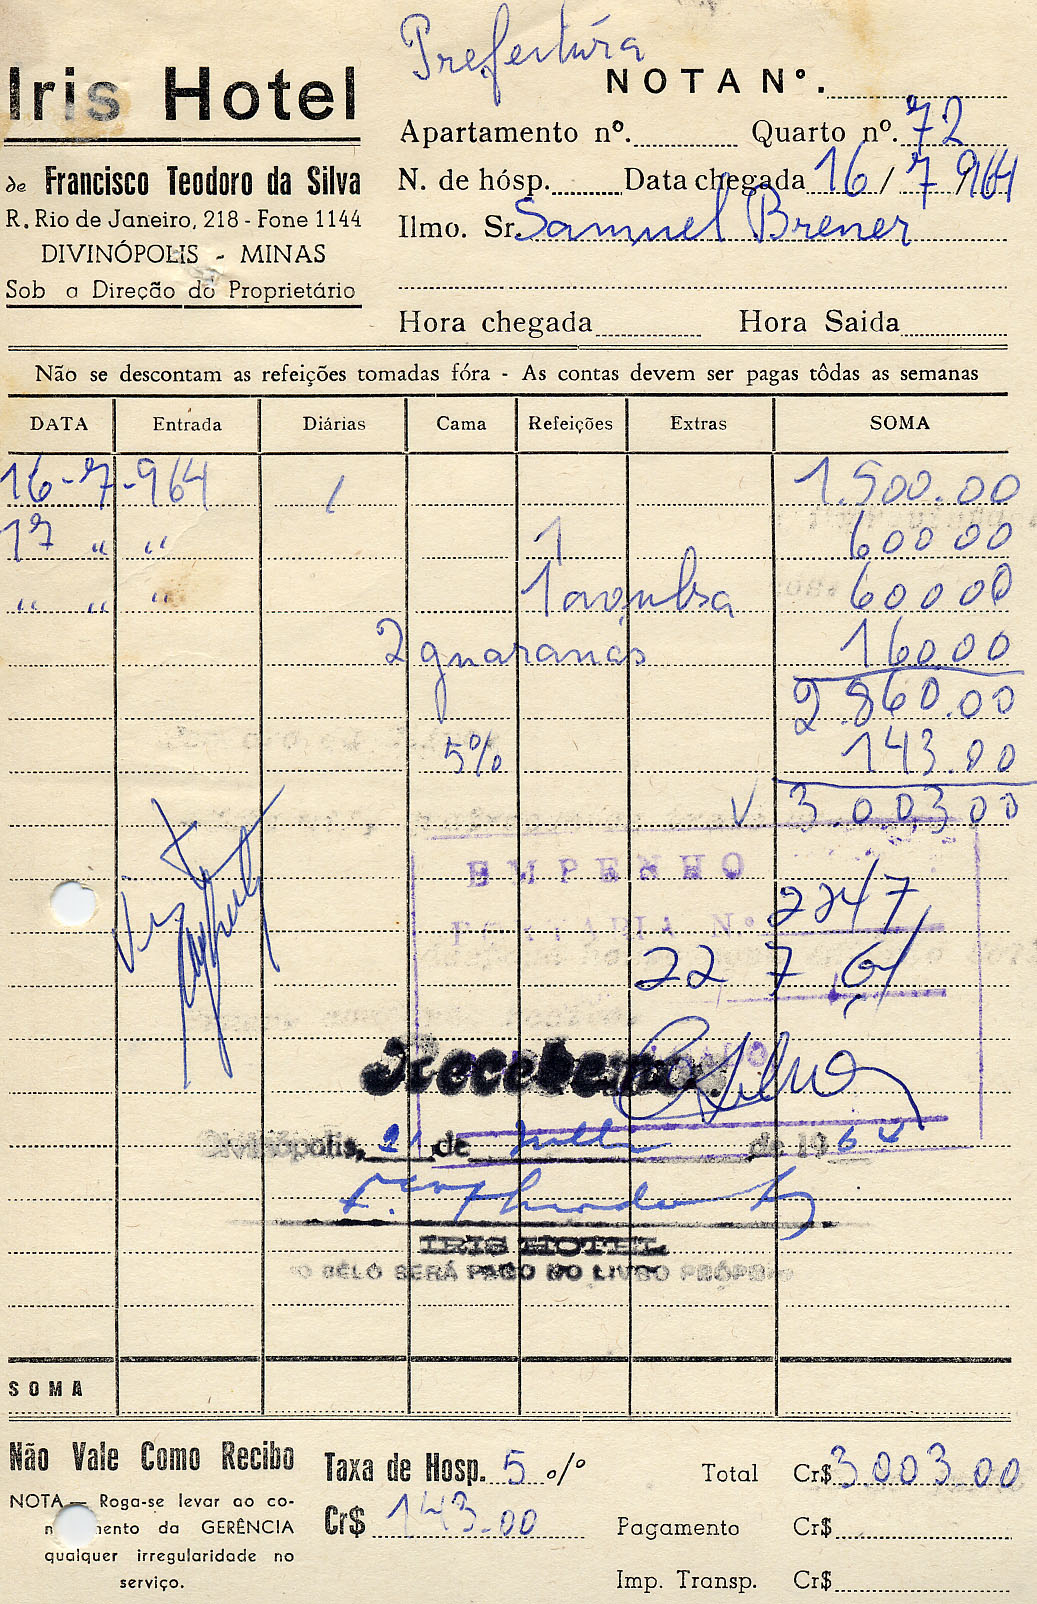 Prefeitura
Iris Hotel
de Francisco Teodoro da Silva
R. Rio de Janeiro, 218 - Fone 1144
DIVINÓPOLIS - MINAS
Sob a Direção do Proprietário
NOTA Nº.
Apartamento nº. Quarto nº. 72
N. de hósp. Data chegada 16 / 7 964
Ilmo. Sr. Samuel Brener
Hora chegada Hora Saida
Não se descontam as refeições tomadas fóra - As contas devem ser pagas tôdas as semanas
DATA Entrada Diárias Cama Refeições Extras SOMA
16-7-964 / 1.500.00
17 " " 1 600 00
" " " 1 600 00
2 guaranás 160 00
2.860.00
5% 143.00
3.003 00
EMPENHO
Nº 2247
22 7 64
Recebemos
Divinópolis, 21 de Julho de 1964
IRIS HOTEL
O SELO SERÁ PAGO NO LIVRO PRÓPRIO
SOMA
Não Vale Como Recibo
NOTA — Roga-se levar ao co-
nhecimento da GERÊNCIA
qualquer irregularidade no
serviço.
Taxa de Hosp. 5 o/o
Cr$ 143.00
Total Cr$ 3.003.00
Pagamento Cr$
Imp. Transp. Cr$